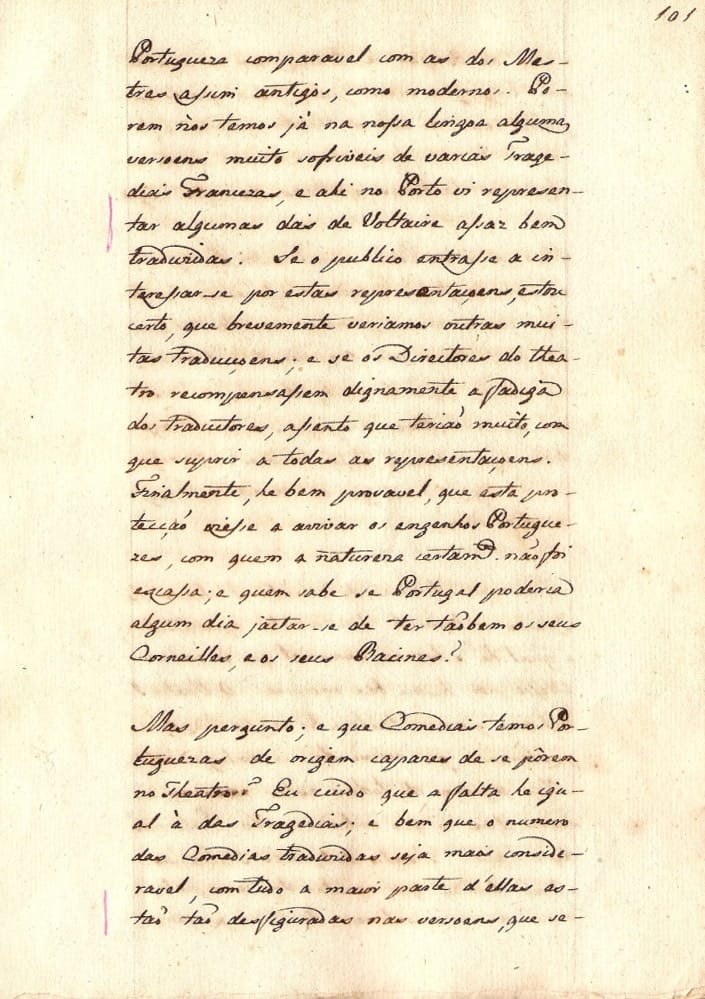 101
Portugueza comparavel com as dos Mes-
tres assim antigos, como modernos. Po-
rem nòs temos já na nossa lingoa algumas
versoens muito sofriveis de varias Trage-
dias Francezas, e ahi no Porto vi represen-
tar algumas das de Voltaire assaz bem
traduzidas. Se o publico entrasse a in-
teressar-se por estas representaçoens, estou
certo, que brevemente veriamos outras mui-
tas traducçoens; e se os Directores do thea-
tro recompensassem dignamente a fadiga
dos traductores, assento que terião muito, com
que suprir a todas as representaçoens.
Finalmente, he bem provavel, que esta pro-
tecção viesse a avivar os engenhos Portugue-
zes, com quem a natureza certamte. não foi
escassa; e quem sabe se Portugal poderia
algum dia jactar-se de ter tãobem os seus
Corneilles, e os seus Racines?
Mas pergunto; e que Comedias temos Por-
tuguezas de origem capazes de se pôrem
no Theatro? Eu cuido que a falta he igu-
al à das Tragedias; e bem que o numero
das Comedias traduzidas seja mais conside-
ravel, com tudo a maior parte d'ellas es-
tão tão desfiguradas nas versoens, que se-